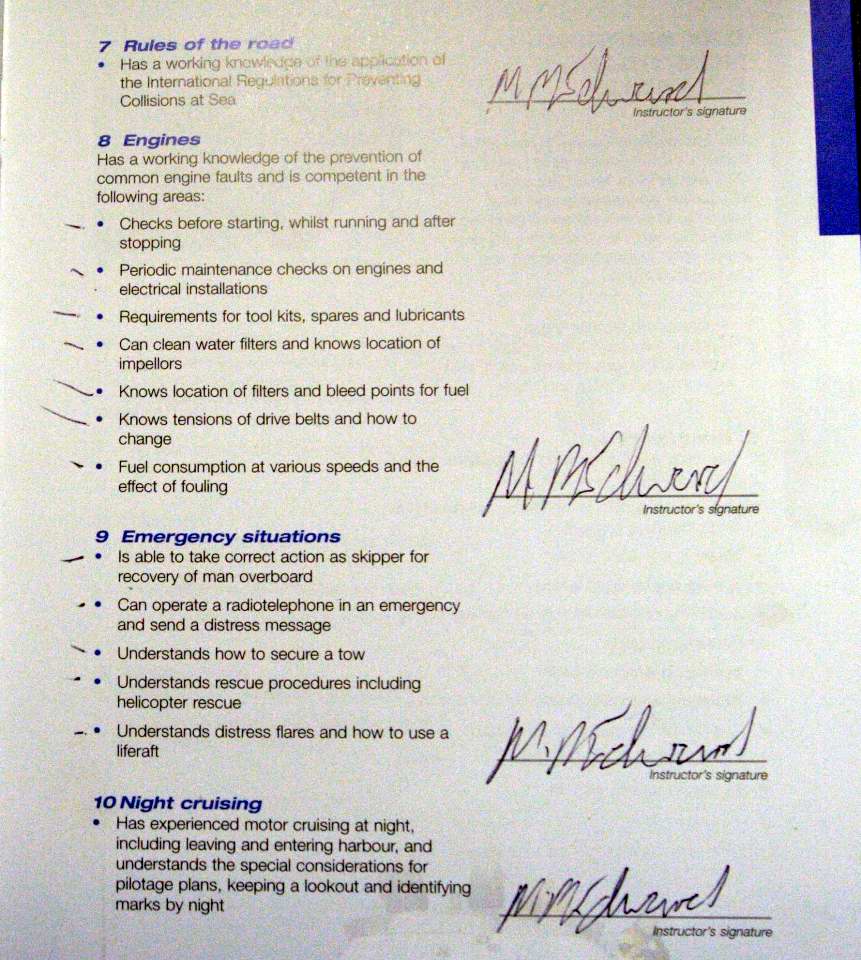 7 Rules of the road
• Has a working knowledge of the application of
the International Regulations for Preventing
Collisions at Sea
Instructor's signature
8 Engines
Has a working knowledge of the prevention of
common engine faults and is competent in the
following areas:
• Checks before starting, whilst running and after
stopping
• Periodic maintenance checks on engines and
electrical installations
• Requirements for tool kits, spares and lubricants
• Can clean water filters and knows location of
impellors
• Knows location of filters and bleed points for fuel
• Knows tensions of drive belts and how to
change
• Fuel consumption at various speeds and the
effect of fouling
Instructor's signature
9 Emergency situations
• Is able to take correct action as skipper for
recovery of man overboard
• Can operate a radiotelephone in an emergency
and send a distress message
• Understands how to secure a tow
• Understands rescue procedures including
helicopter rescue
• Understands distress flares and how to use a
liferaft
Instructor's signature
10 Night cruising
• Has experienced motor cruising at night,
including leaving and entering harbour, and
understands the special considerations for
pilotage plans, keeping a lookout and identifying
marks by night
Instructor's signature